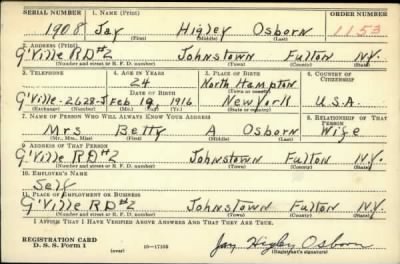 SERIAL NUMBER 1. NAME (Print) ORDER NUMBER
1908 Jay Higley Osborn 1153
(First) (Middle) (Last)
2. ADDRESS (Print)
G'Ville RD#2 Johnstown Fulton N.Y.
(Number and street or R. F. D. number) (Town) (County) (State)
3. TELEPHONE 4. AGE IN YEARS 5. PLACE OF BIRTH 6. COUNTRY OF CITIZENSHIP
24 North Hampton
DATE OF BIRTH (Town or county)
G'Ville-2628-J Feb 19 1916 New York U.S.A.
(Exchange) (Number) (Mo.) (Day) (Yr.) (State or country)
7. NAME OF PERSON WHO WILL ALWAYS KNOW YOUR ADDRESS 8. RELATIONSHIP OF THAT PERSON
Mrs Betty A Osborn Wife
(Mr., Mrs., Miss) (First) (Middle) (Last)
9. ADDRESS OF THAT PERSON
G'Ville RD#2 Johnstown Fulton N.Y.
(Number and street or R. F. D. number) (Town) (County) (State)
10. EMPLOYER'S NAME
Self
11. PLACE OF EMPLOYMENT OR BUSINESS
G'Ville RD#2 Johnstown Fulton N.Y.
(Number and street or R. F. D. number) (Town) (County) (State)
I AFFIRM THAT I HAVE VERIFIED ABOVE ANSWERS AND THAT THEY ARE TRUE.
REGISTRATION CARD
D. S. S. Form 1 (over) 16—17105 Jay Higley Osborn
(Registrant's signature)